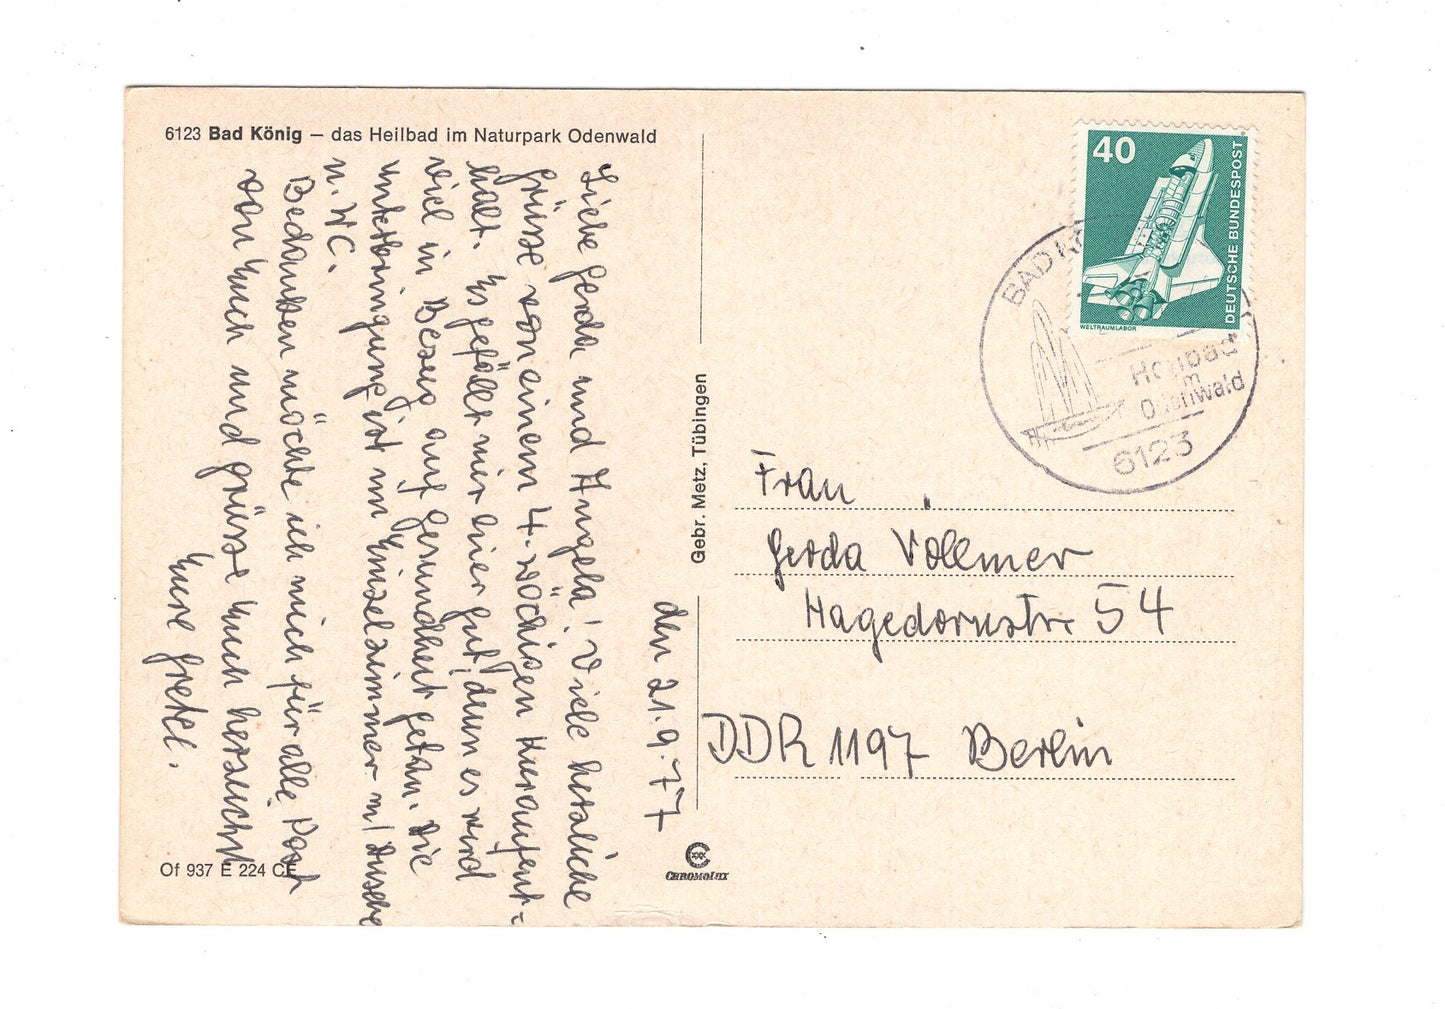 6123 Bad König – das Heilbad im Naturpark Odenwald
den 21.9.77
Liebe Gerda und Angela! Viele herzliche
Grüsse von einem 4-wöchigen Kuraufent-
halt. Es gefällt mir hier gut, denn es wird
viel in Bezug auf Gesundheit getan. Die
Unterbringung ist im Einzelzimmer m/Dusche
u. WC.
Bedanken möchte ich mich für alle Post
von Euch und grüsse Euch herzlichst
Eure Gretel.
Of 937 E 224 CE
Gebr. Metz, Tübingen
CHROMOLUX
40
DEUTSCHE BUNDESPOST
WELTRAUMLABOR
BAD KÖ
Heilbad
im
Odenwald
6123
Frau
Gerda Vollmer
Hagedornstr. 54
DDR 1197 Berlin